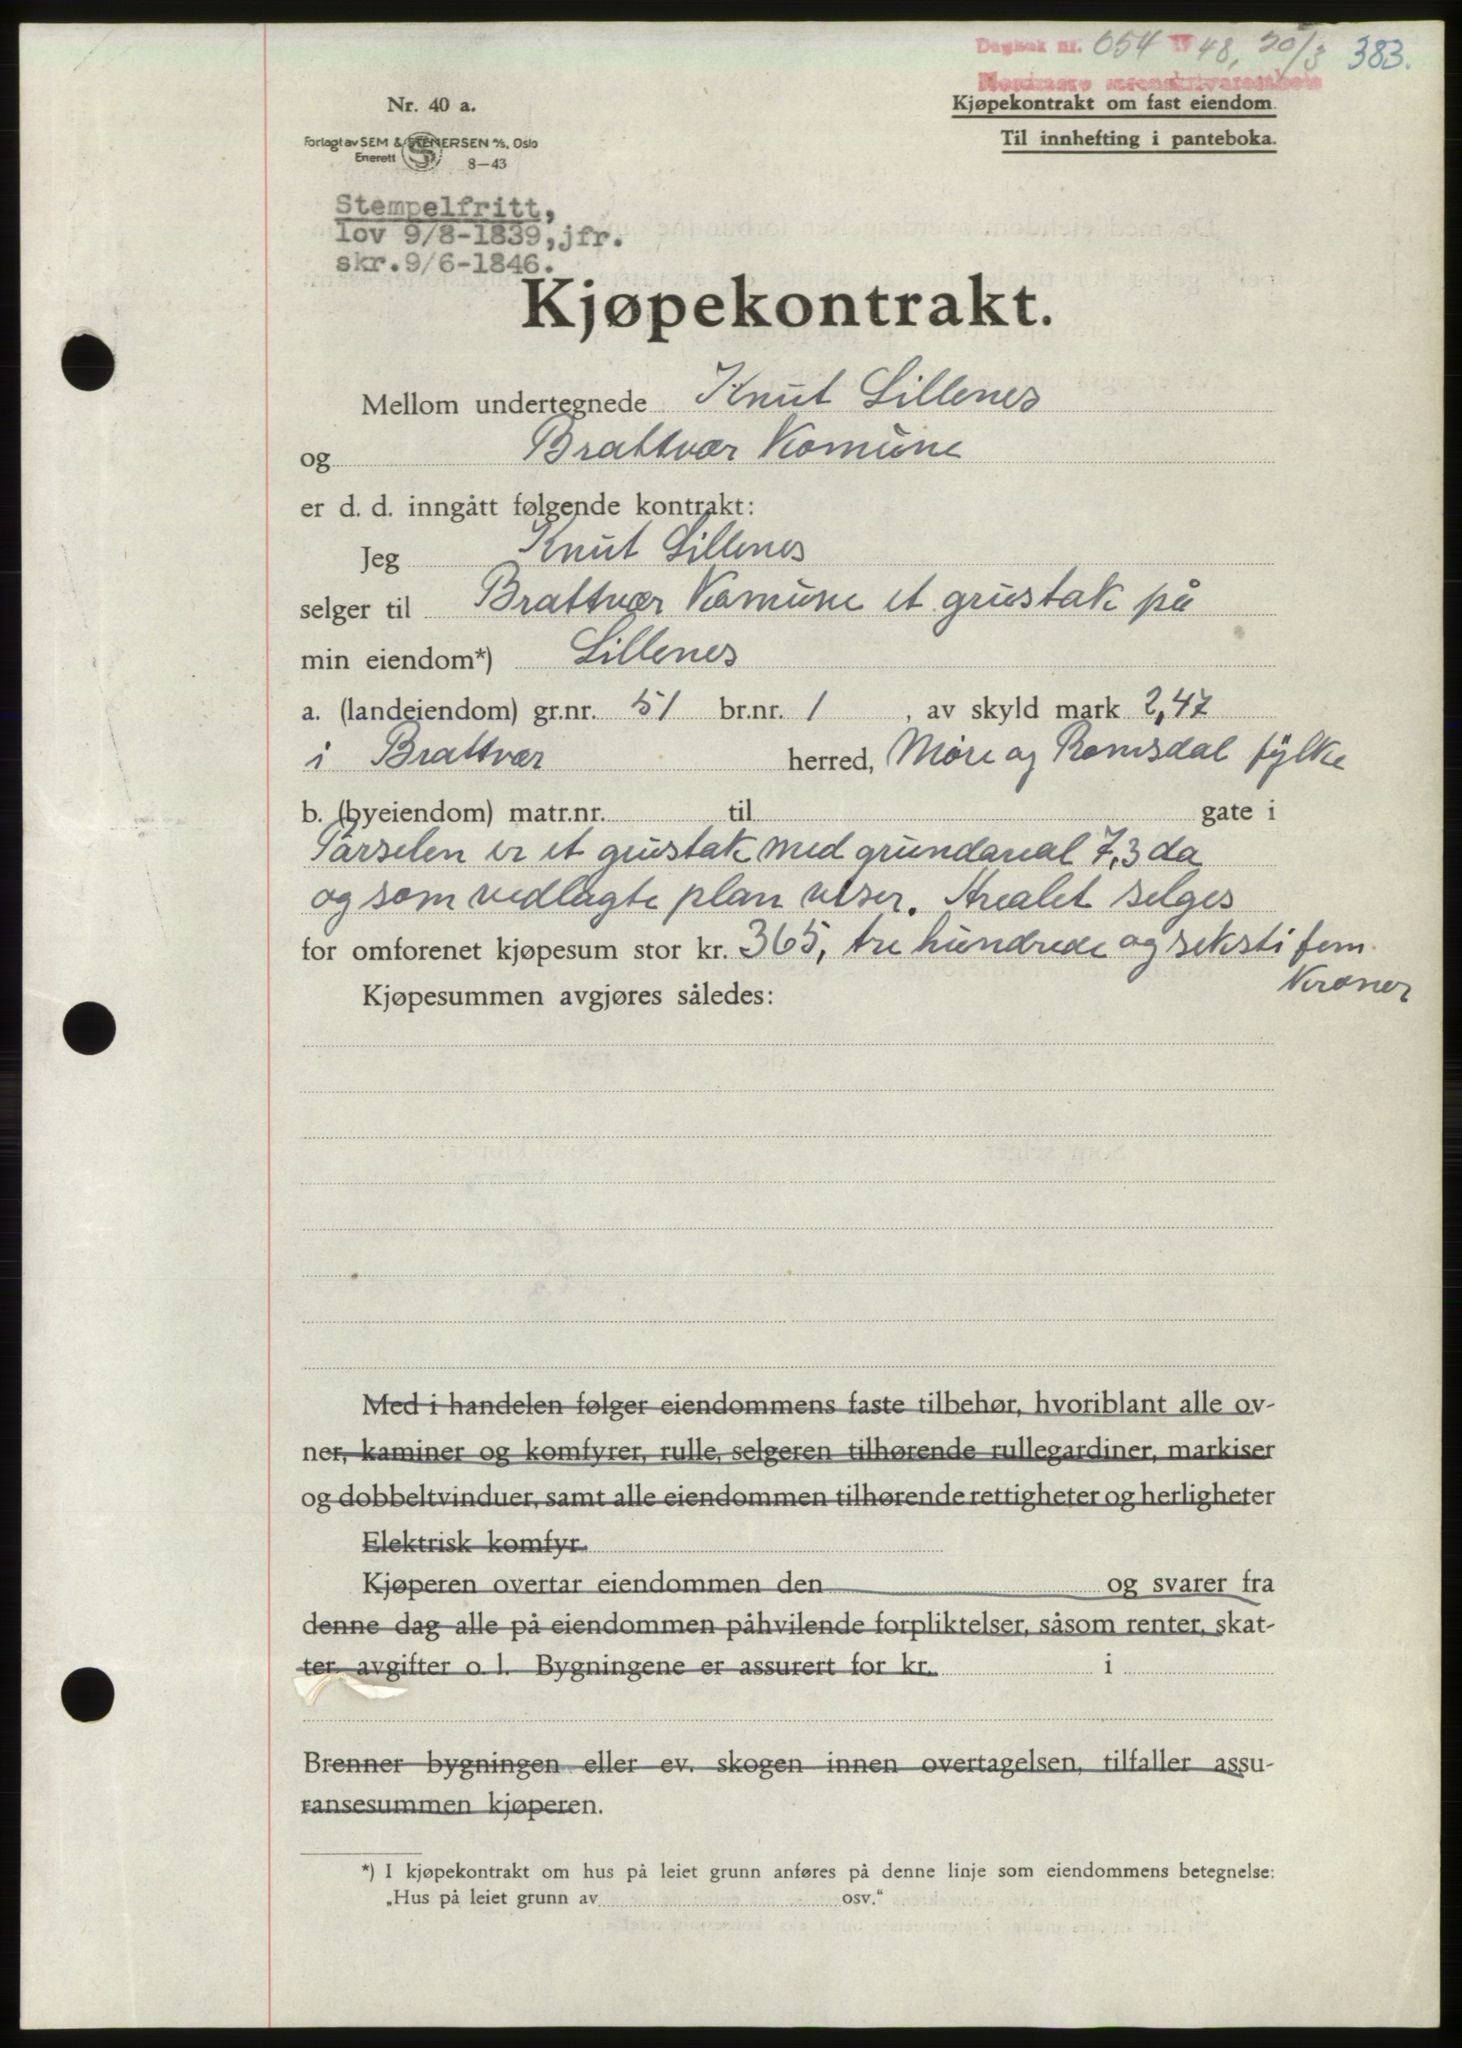 Dagbok nr. 654 19 48, 20/3 383.
Nordmøre sorenskriverembete
Nr. 40 a.
Kjøpekontrakt om fast eiendom.
Forlagt av SEM & STENERSEN A/S, Oslo
Til innhefting i panteboka.
Enerett 8—43
Stempelfritt,
lov 9/8-1839, jfr.
skr. 9/6-1846.
Kjøpekontrakt.
Mellom undertegnede Knut Lillenes
og Brattvær Komune
er d. d. inngått følgende kontrakt:
Jeg Knut Lillenes
selger til Brattvær Komune et grustak på
min eiendom*) Lillenes
a. (landeiendom) gr.nr. 51 br.nr. 1 , av skyld mark 2,47
i Brattvær herred, Møre og Romsdal fylke
b. (byeiendom) matr.nr. til gate i
Parselen er et grustak med grundareal 7,3 da
og som vedlagte plan viser. Arealet selges
for omforenet kjøpesum stor kr. 365, tre hundrede og seksti fem
Kroner
Kjøpesummen avgjøres således:
Med i handelen følger eiendommens faste tilbehør, hvoriblant alle ov-
ner, kaminer og komfyrer, rulle, selgeren tilhørende rullegardiner, markiser
og dobbeltvinduer, samt alle eiendommen tilhørende rettigheter og herligheter
Elektrisk komfyr.
Kjøperen overtar eiendommen den og svarer fra
denne dag alle på eiendommen påhvilende forpliktelser, såsom renter, skat-
ter, avgifter o. l. Bygningene er assurert for kr. i
Brenner bygningen eller ev. skogen innen overtagelsen, tilfaller assu-
ransesummen kjøperen.
*) I kjøpekontrakt om hus på leiet grunn anføres på denne linje som eiendommens betegnelse:
„Hus på leiet grunn av osv.“